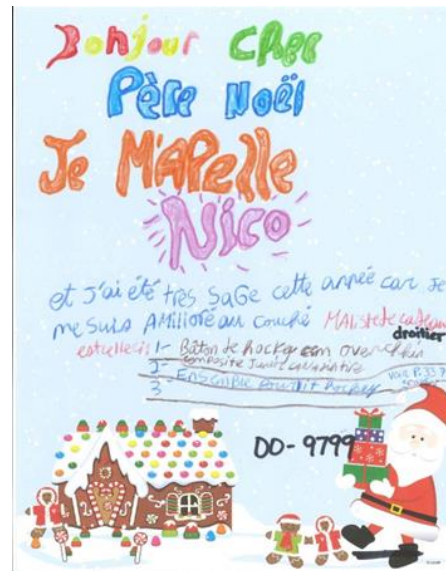 Bonjour Cher
Père Noël
Je M'APelle
Nico
et J'ai été très SaGe cette année car Je
me suis AMilioré au couché MA liste de cadeau
droitier
est celleci 1- Bâton de hockey ccm
composite Junior
2- Ensemble
3
DD-9799